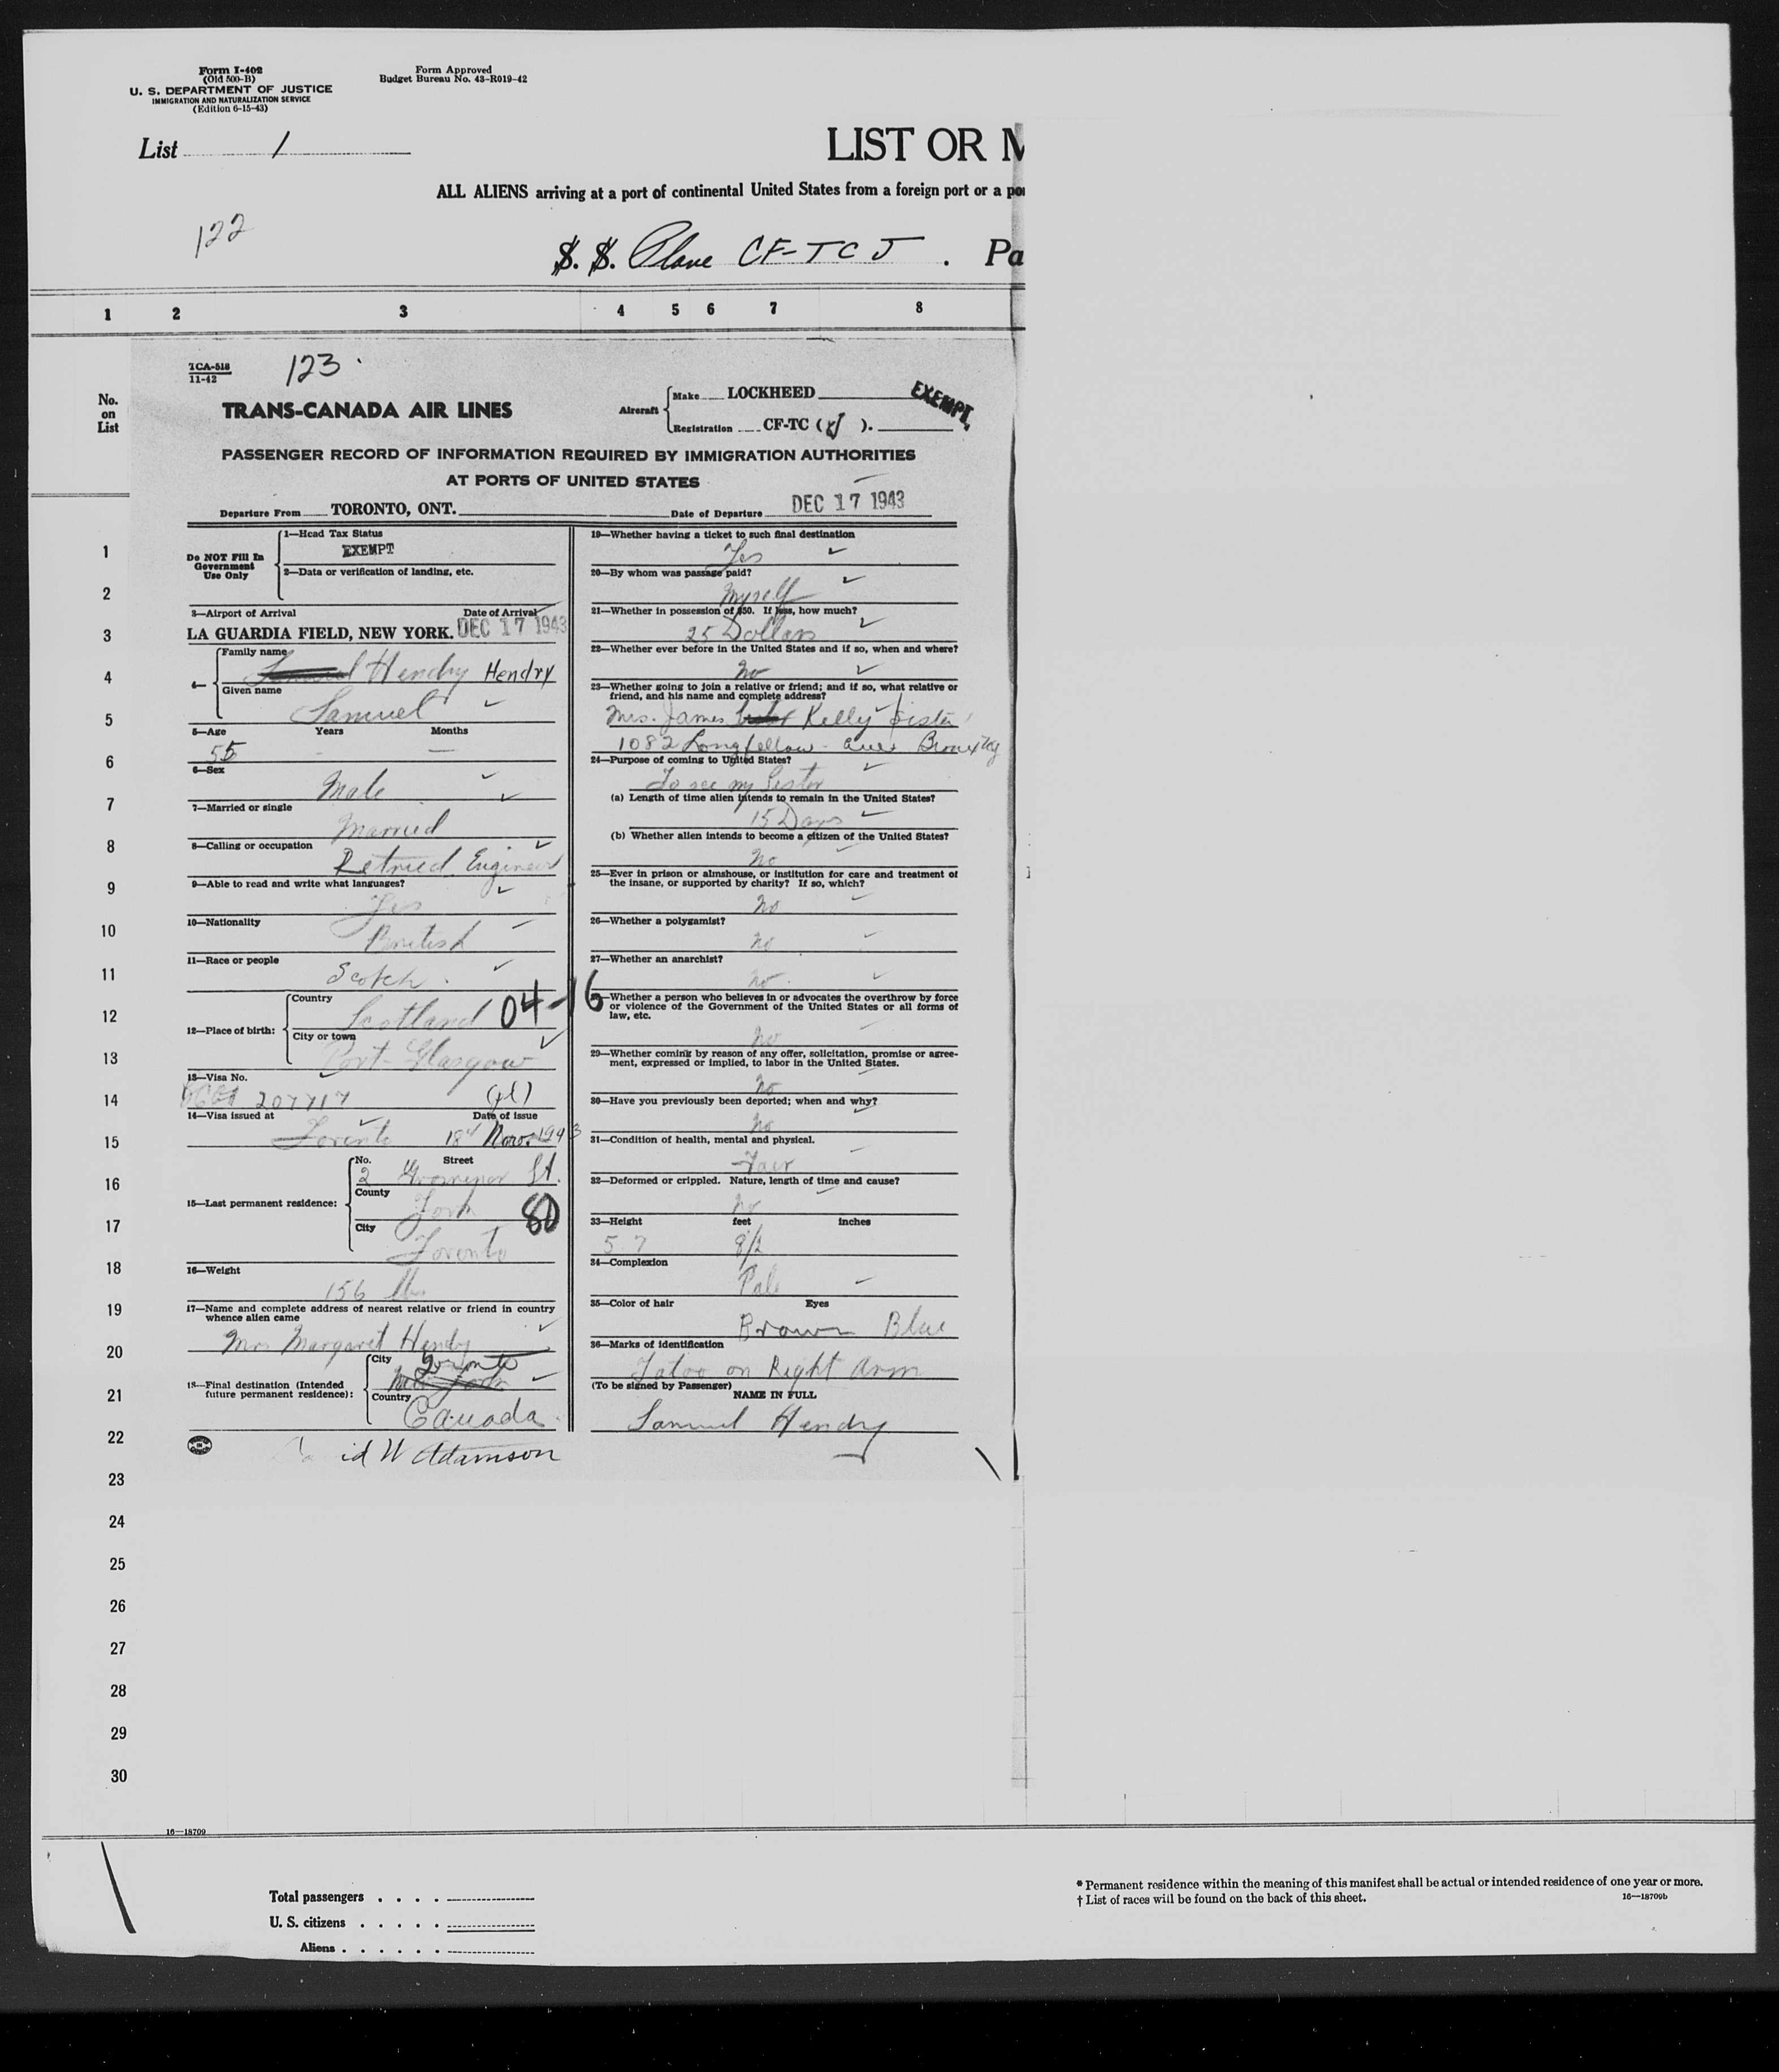 Form I-402
(Old 500-B)
U. S. DEPARTMENT OF JUSTICE
IMMIGRATION AND NATURALIZATION SERVICE
(Edition 6-15-43)
Form Approved
Budget Bureau No. 43-R019-42
List 1
LIST OR M
ALL ALIENS arriving at a port of continental United States from a foreign port or a po
122
S. S. Plane CF-TCJ . Pa
1 2 3 4 5 6 7 8
No.
on
List
TCA-518
11-42
123
TRANS-CANADA AIR LINES
Aircraft
Make LOCKHEED
Registration CF-TC (J).
EXEMPT
PASSENGER RECORD OF INFORMATION REQUIRED BY IMMIGRATION AUTHORITIES
AT PORTS OF UNITED STATES
Departure From TORONTO, ONT. Date of Departure DEC 17 1943
Do NOT Fill In
Government
Use Only
1—Head Tax Status
EXEMPT
2—Data or verification of landing, etc.
3—Airport of Arrival Date of Arrival
LA GUARDIA FIELD, NEW YORK. DEC 17 1943
4—
Family name
Hendry Hendry
Given name
Samuel
5—Age Years Months
55 - —
6—Sex
Male
7—Married or single
Married
8—Calling or occupation
Retried Engineer
9—Able to read and write what languages?
Yes
10—Nationality
British
11—Race or people
Scotch
12—Place of birth:
Country
Scotland 04-16
City or town
Port-Glasgow
13—Visa No.
207717
14—Visa issued at Date of issue
Toronto 18th Nov. 1943
15—Last permanent residence:
No. Street
2 Grosvenor St.
County
York 80
City
Toronto
16—Weight
156 lbs
17—Name and complete address of nearest relative or friend in country
whence alien came
Mrs Margaret Hendry
18—Final destination (Intended
future permanent residence):
City
Toronto
New York
Country
Canada
id W Adamson
19—Whether having a ticket to such final destination
Yes
20—By whom was passage paid?
Myself
21—Whether in possession of $50. If less, how much?
25 Dollars
22—Whether ever before in the United States and if so, when and where?
No
23—Whether going to join a relative or friend; and if so, what relative or
friend, and his name and complete address?
Mrs. James Kelly Sister
1082 Longfellow ave Bronx
24—Purpose of coming to United States?
To see my Sister
(a) Length of time alien intends to remain in the United States?
15 Days
(b) Whether alien intends to become a citizen of the United States?
No
25—Ever in prison or almshouse, or institution for care and treatment of
the insane, or supported by charity? If so, which?
No
26—Whether a polygamist?
No
27—Whether an anarchist?
No
Whether a person who believes in or advocates the overthrow by force
or violence of the Government of the United States or all forms of
law, etc.
No
29—Whether coming by reason of any offer, solicitation, promise or agree-
ment, expressed or implied, to labor in the United States.
No
30—Have you previously been deported; when and why?
No
31—Condition of health, mental and physical.
Fair
32—Deformed or crippled. Nature, length of time and cause?
No
33—Height feet inches
5 7 8/2
34—Complexion
Pale
35—Color of hair Eyes
Brown Blue
36—Marks of identification
Tatoo on Right Arm
(To be signed by Passenger)
NAME IN FULL
Samuel Hendry
1
2
3
4
5
6
7
8
9
10
11
12
13
14
15
16
17
18
19
20
21
22
23
24
25
26
27
28
29
30
16—18709
Total passengers . . . .
U. S. citizens . . . . .
Aliens . . . . . .
* Permanent residence within the meaning of this manifest shall be actual or intended residence of one year or more.
† List of races will be found on the back of this sheet.
16—18709b